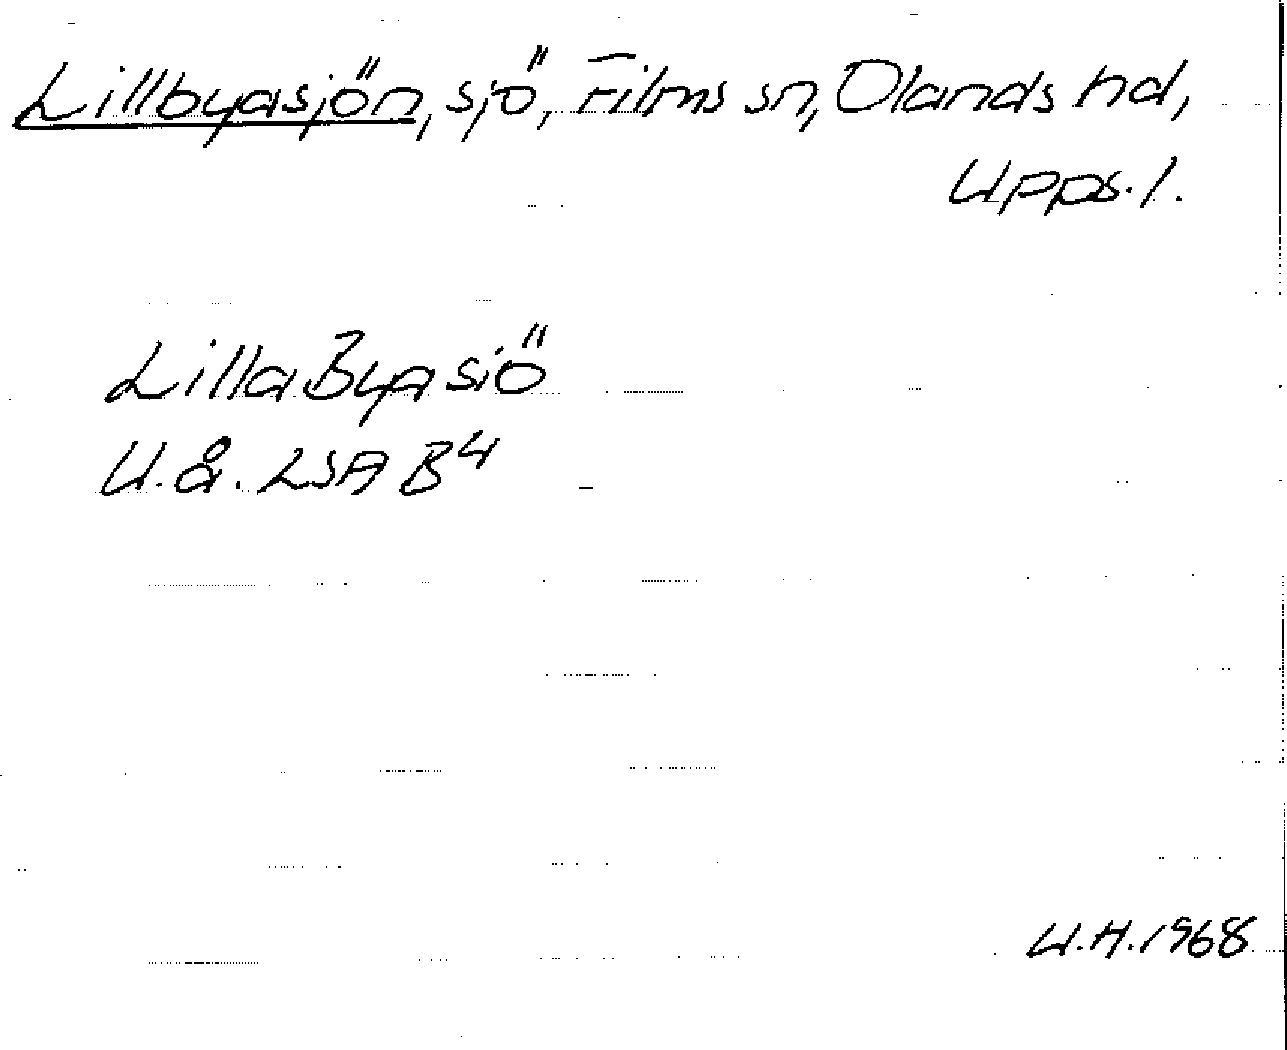 Lillbyasjön, sjö, Films sn, Olands hd,
Upps. l.
Lilla Byasiö
U.å. LSA B4
U.H. 1968